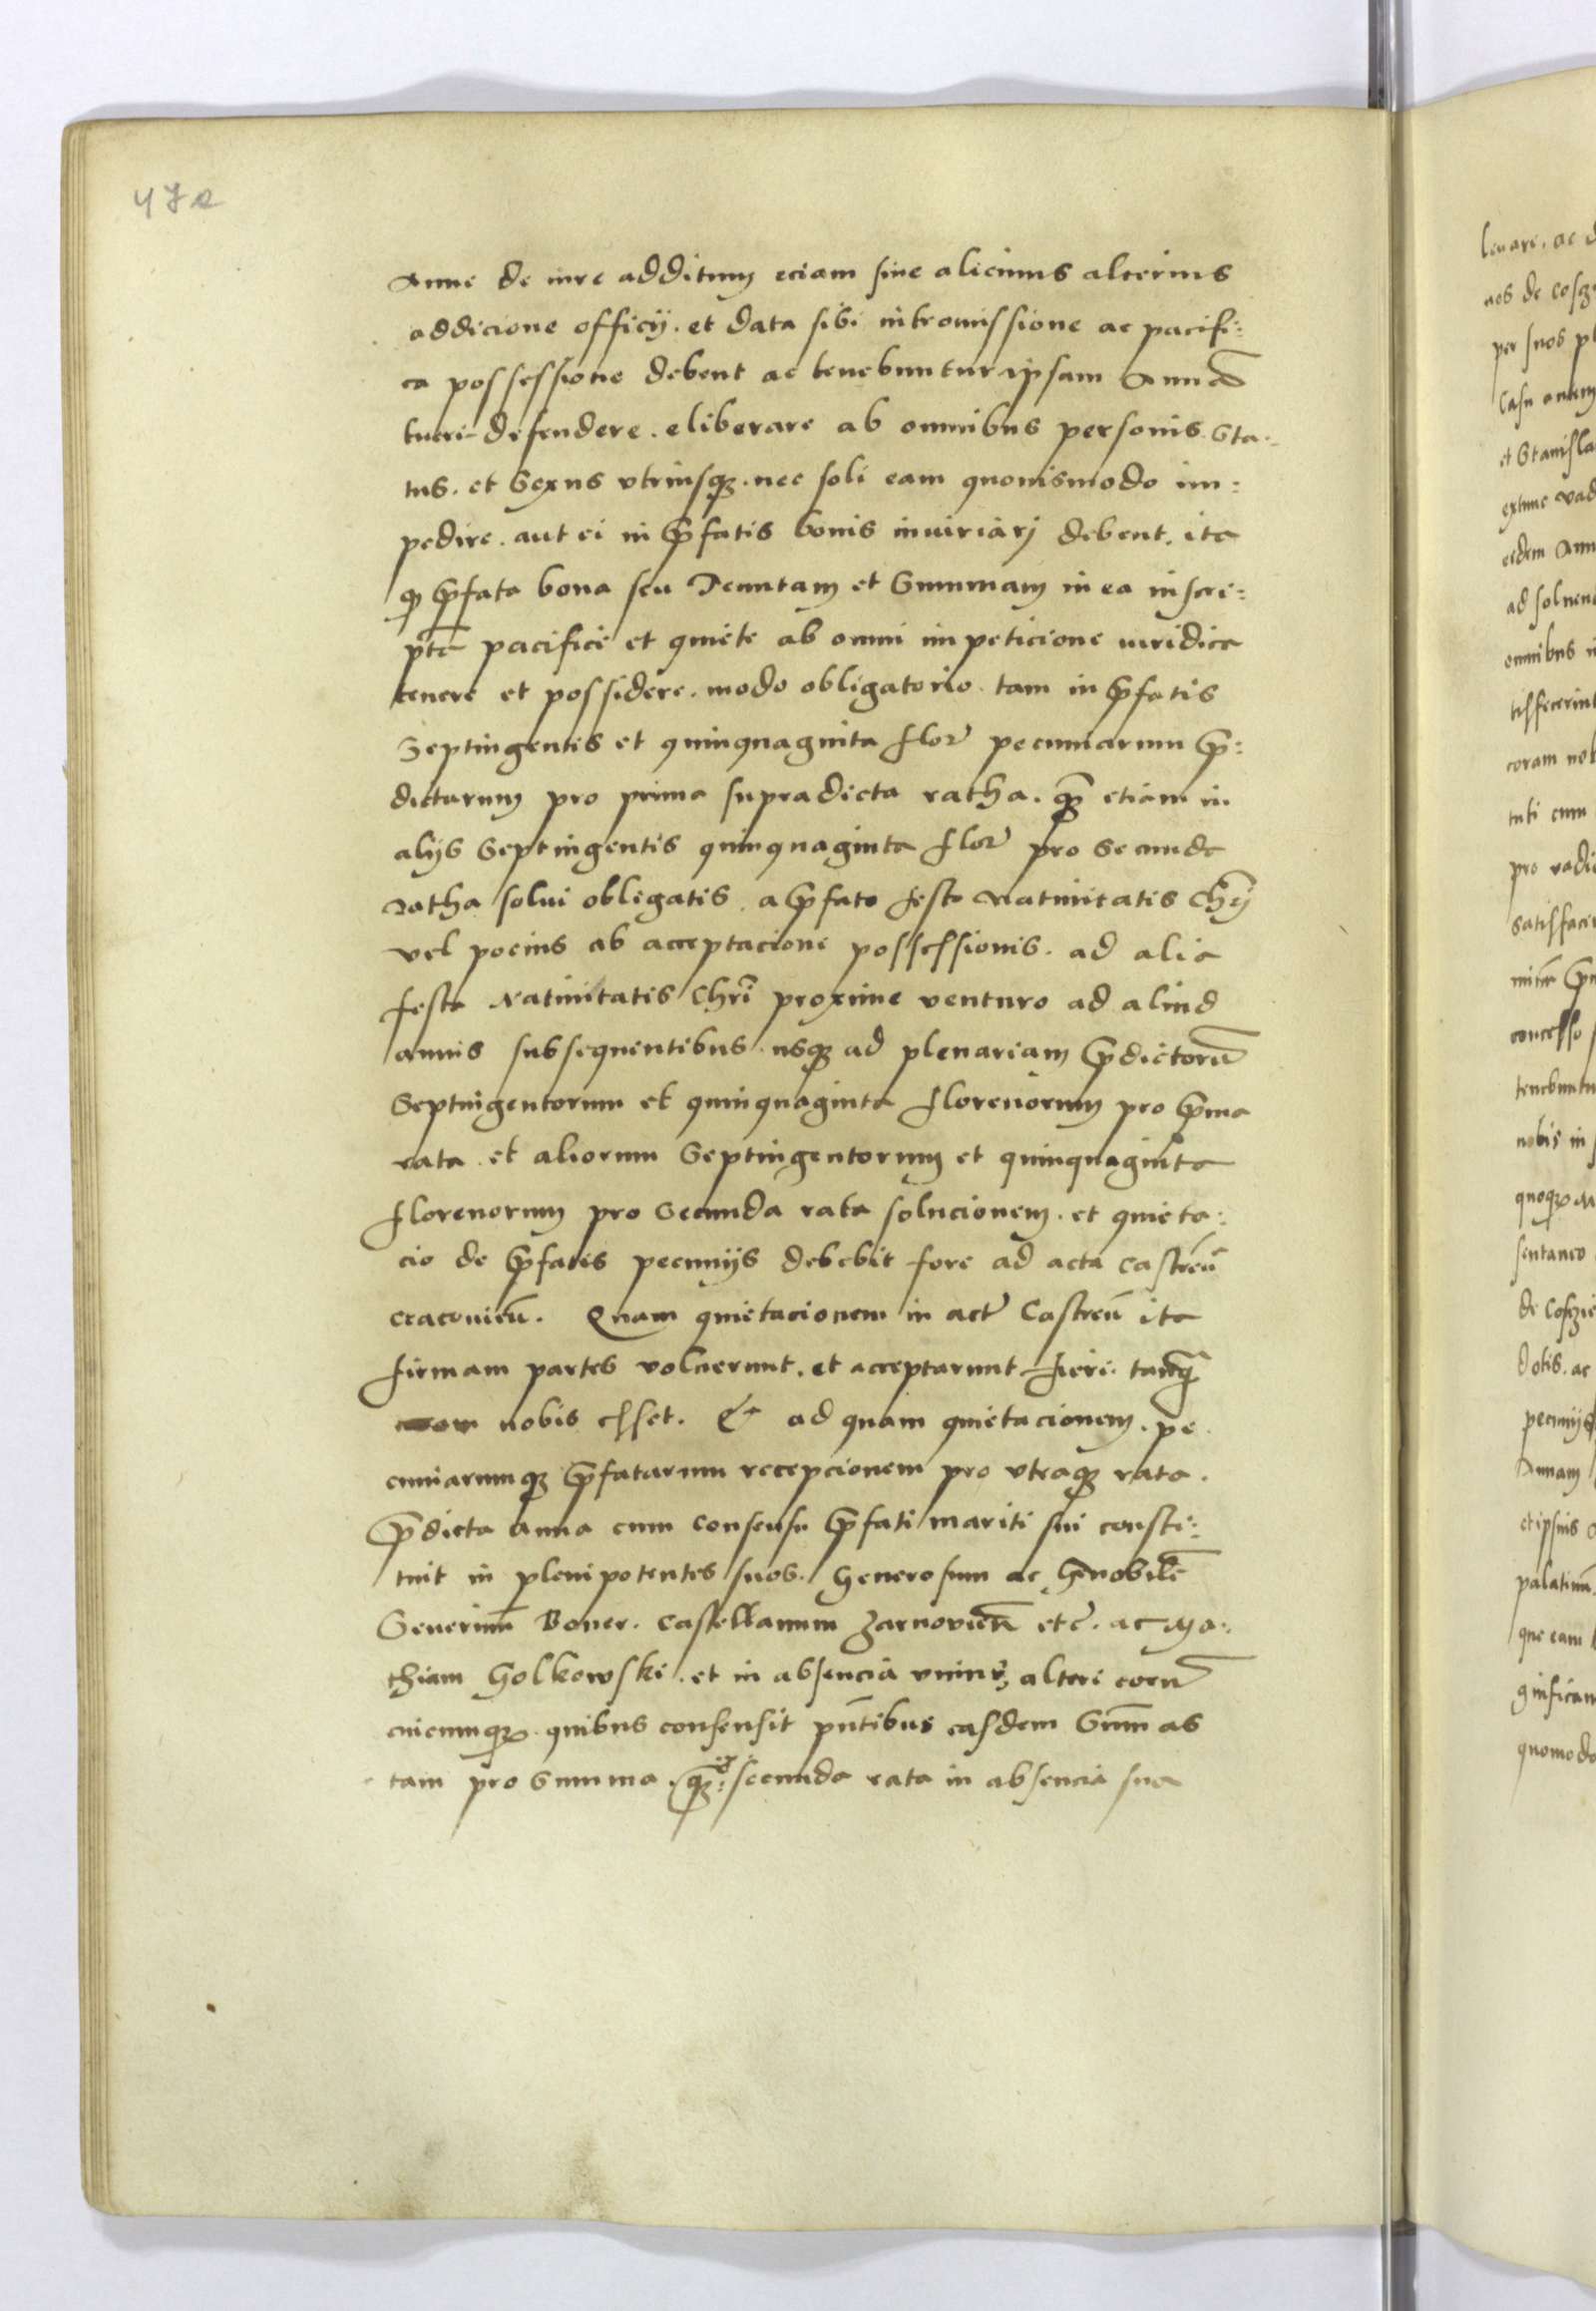 472
Anne de iure additum eciam sine alicuius alterius
addicione officij. et data sibi intromissione ac pacifi:
ca possessione debent ac tenebuntur ipsam Annā
tueri defendere. eliberare ab omnibus personis. Sta:
tus. et Sexus vtriusqȝ. nec soli eam quouismodo im:
pedire. aut ei in p̄fatis bonis iniuriarj debent. ita
qp̄ p̄fata bona seu Decuntam et Summam in ea inscri:
ptā pacifice et quiete ab omni impeticione iuridica
tenere et possidere. modo obligatorio. tam in p̄fatis
Septingentis et quinquaginta flor̄ pecuniarum p̄:
dictarum pro prima supradicta ratha. qȝ̄ etiam in
alijs Septingentis quinquaginta flor̄ pro Secunda
Ratha solui obligatis. a p̄fato festo Natiuitatis Chrj̄
vel pocius ab acceptacione possessionis. ad alia
festa Natiuitatis Chrī proxime venturo ad aliud
annis subsequentibus. usqȝ ad plenariam p̄dictorū
Septingentorum et quinquaginta florenorum pro p̄ma
rata. et aliorum Septingentorum et quinquaginta
florenorum pro Secunda rata solucionem. et quieta:
cio de p̄fatis pecunijs debebit fore ad acta Castreñ
Cracouieñ. Quam quietacionem in act̄ Castreñ ita
firmam partes voluerunt. et acceptarunt fieri. tanq̄
coram nobis esset. Et ad quam quietacionem. pe
cuniarumqȝ p̄fatarum recepcionem pro vtraqȝ rata.
p̄dicta Anna cum consensu p̄fati mariti sui consti:
tuit in plenipotentes suos. Generosum ac G̅nobilē
Seuerinū Boner. Castellanum Zarnovieñ etc̄. ac Ma:
thiam Golkowski. et in absencia vnius, alteri eorū
cuicumqȝ. quibus consensit pn̄tibus easdem Sum̄as
tam pro Summa. qȝ̄: secunda rata in absencia sua
leuare. ac d
nos de Cosz
per suos pl
Casu autem
et Stanisla
extunc vad
eidem Ann
ad soluen
omnibus i
tisfecerint
coram nob
tuti cum
pro vadi
satisfacer
concesso
tenebuntu
nobis in
sentaneo
dotis. ac
pecunijs
Annam
et ipsius
palatinū
que eam
gnifican
quomodo